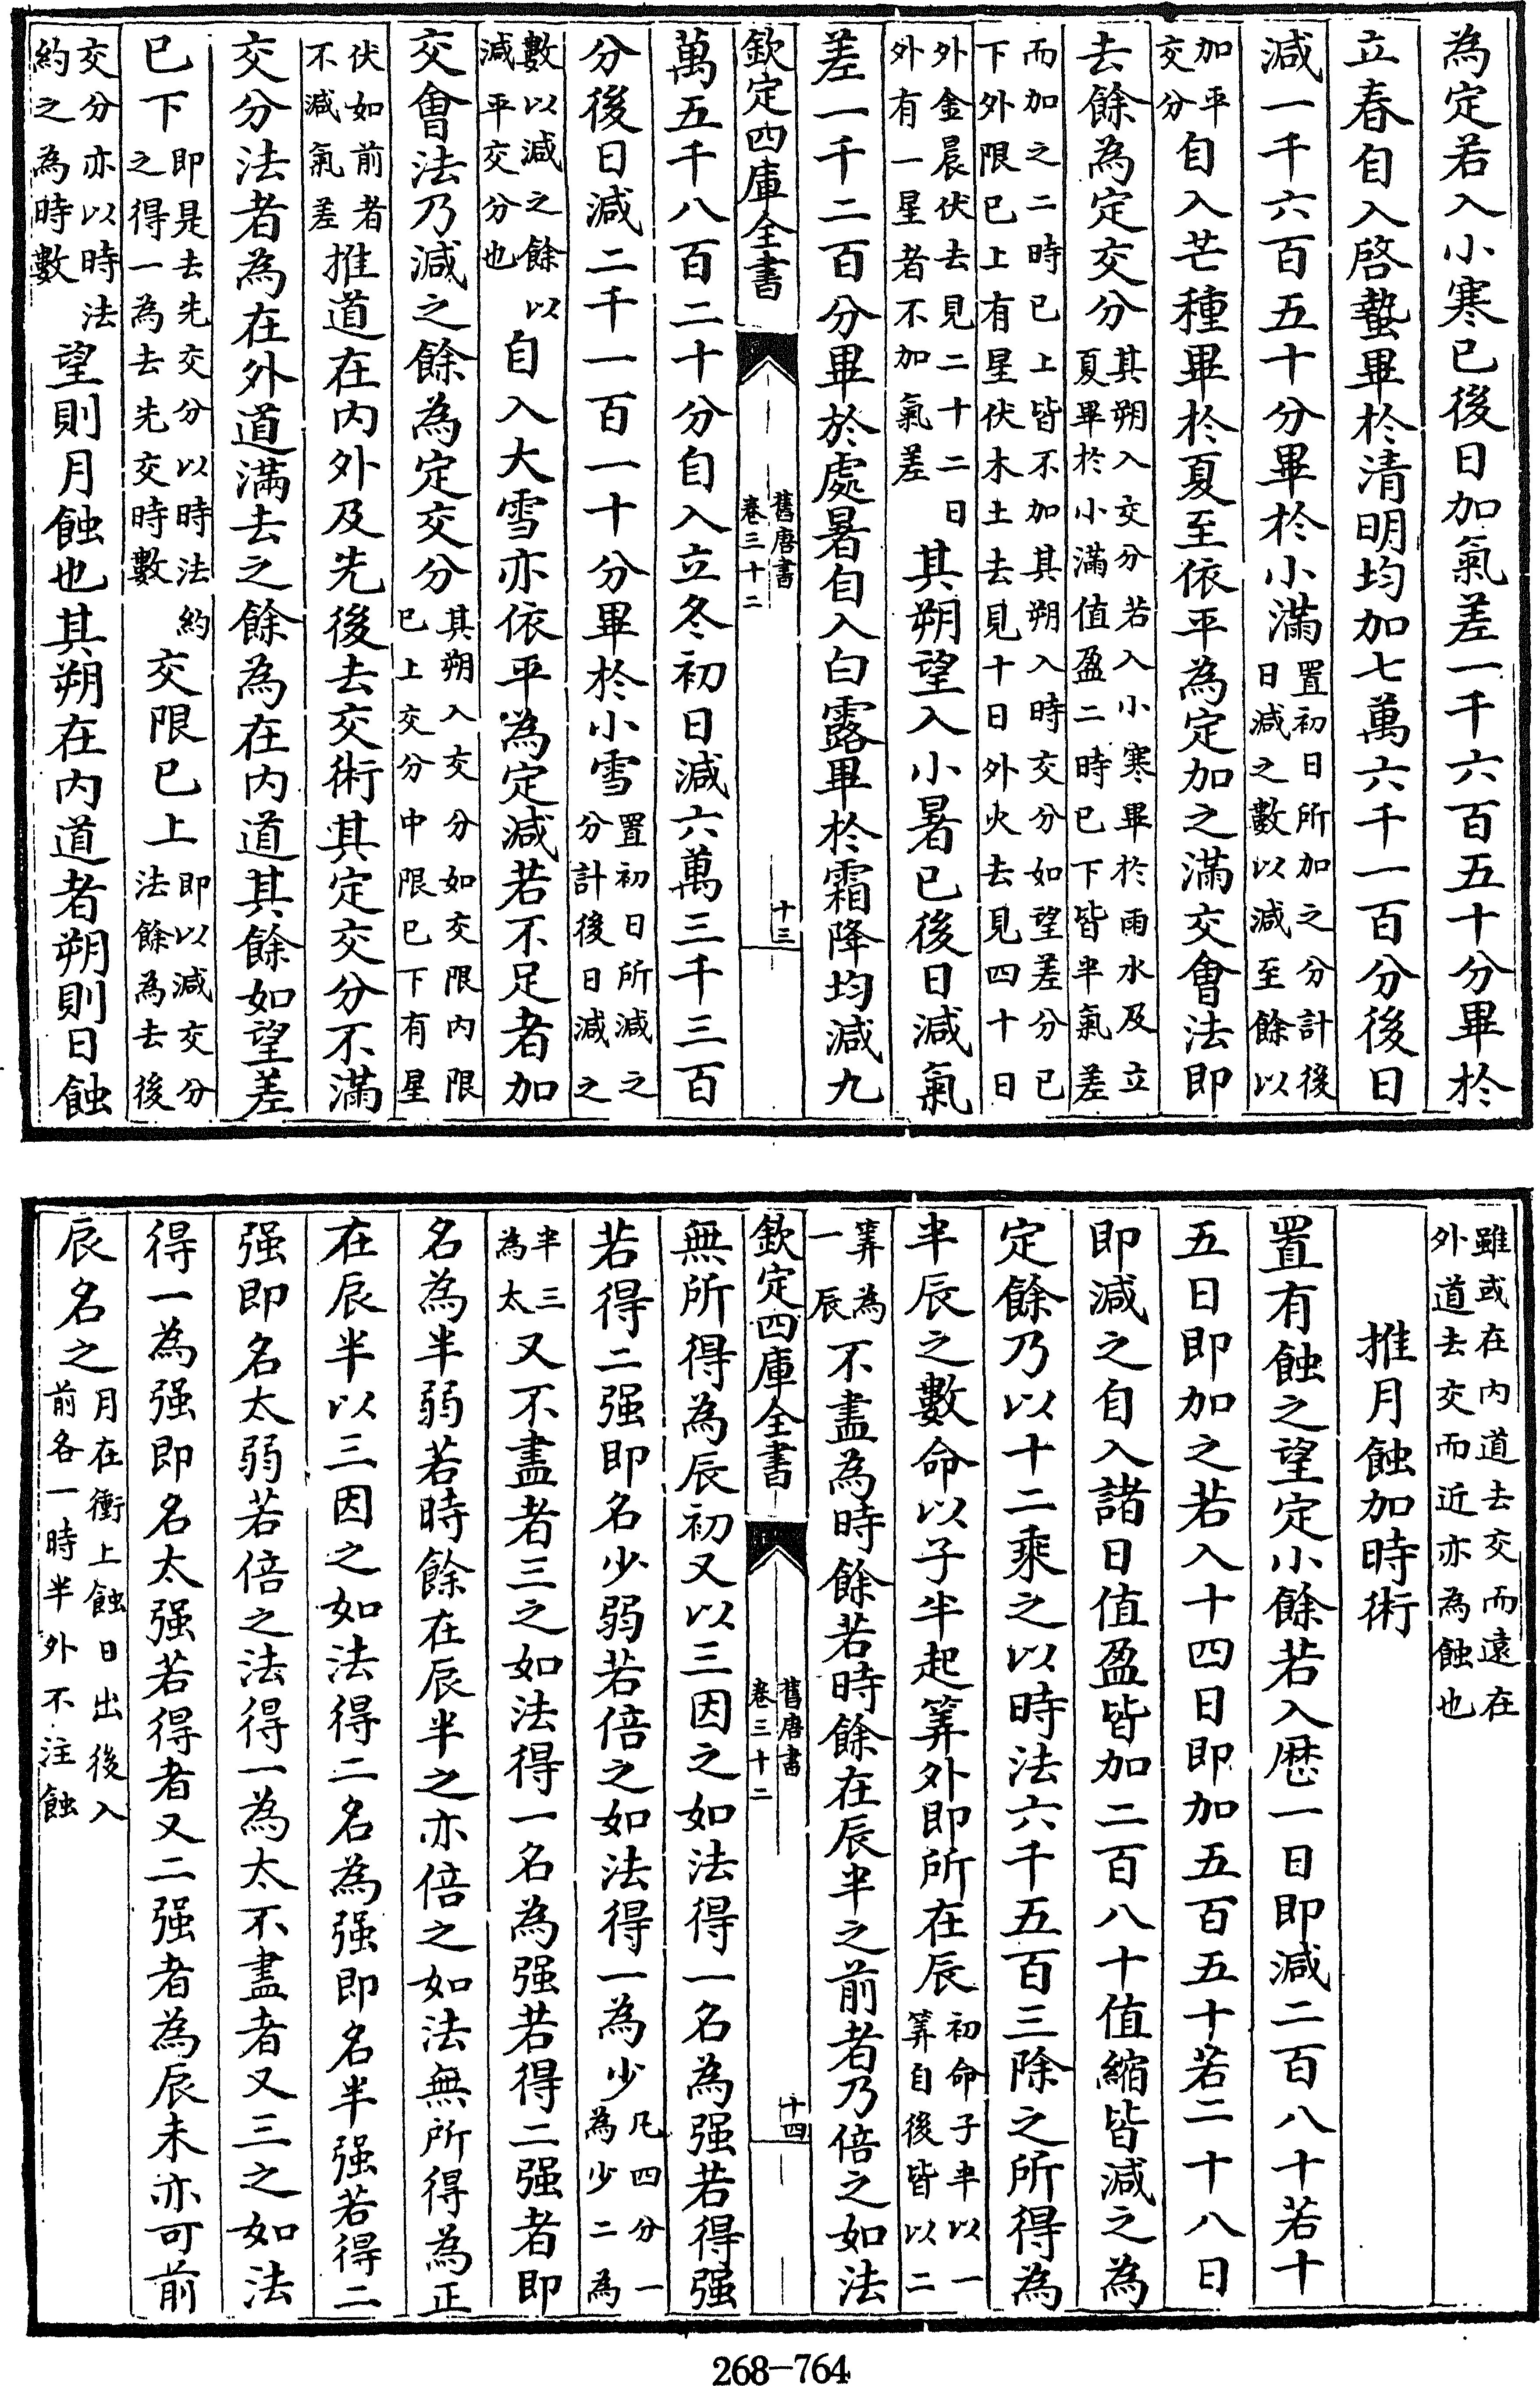 為定若入小寒已後日加氣差一千六百五十分畢於
立春自入啓蟄畢於清明均加七萬六千一百分後日
減一千六百五十分畢於小滿置初日所加之分計後日減之數以減至餘以
加平交分自入芒種畢於夏至依平為定加之滿交會法即
去餘為定交分其朔入交分若入小寒畢於雨水及立夏畢於小滿值盈二時已下皆半氣差
而加之二時已上皆不加其朔入時交分如望差分已下外限已上有星伏木土去見十日外火去見四十日
外金晨伏去見二十二日外有一星者不加氣差其朔望入小暑已後日減氣
差一千二百分畢於處暑自入白露畢於霜降均減九
欽定四庫全書
舊唐書
卷三十二
十三
萬五千八百二十分自入立冬初日減六萬三千三百
分後日減二千一百一十分畢於小雪置初日所減之分計後日減之
數以減之餘以減平交分也自入大雪亦依平為定減若不足者加
交會法乃減之餘為定交分其朔入交分如交限內限已上交分中限已下有星
伏如前者不減氣差推道在內外及先後去交術其定交分不滿
交分法者為在外道滿去之餘為在內道其餘如望差
已下即是去先交分以時法約之得一為去先交時數交限已上即以減交分法餘為去後
交分亦以時法約之為時數望則月蝕也其朔在內道者朔則日蝕
雖或在內道去交而遠在外道去交而近亦為蝕也
推月蝕加時術
置有蝕之望定小餘若入歷一日即減二百八十若十
五日即加之若入十四日即加五百五十若二十八日
即減之自入諸日值盈皆加二百八十值縮皆減之為
定餘乃以十二乘之以時法六千五百三除之所得為
半辰之數命以子半起筭外即所在辰初命子半以一筭自後皆以二
筭為一辰不盡為時餘若時餘在辰半之前者乃倍之如法
欽定四庫全書
舊唐書
卷三十二
十四
無所得為辰初又以三因之如法得一名為强若得强
若得二强即名少弱若倍之如法得一為少凡四分一為少二為
半三為太又不盡者三之如法得一名為强若得二强者即
名為半弱若時餘在辰半之亦倍之如法無所得為正
在辰半以三因之如法得二名為强即名半强若得二
强即名太弱若倍之法得一為太不盡者又三之如法
得一為强即名太强若得者又二强者為辰末亦可前
辰名之月在衝上蝕日出後入前各一時半外不注蝕
268-764